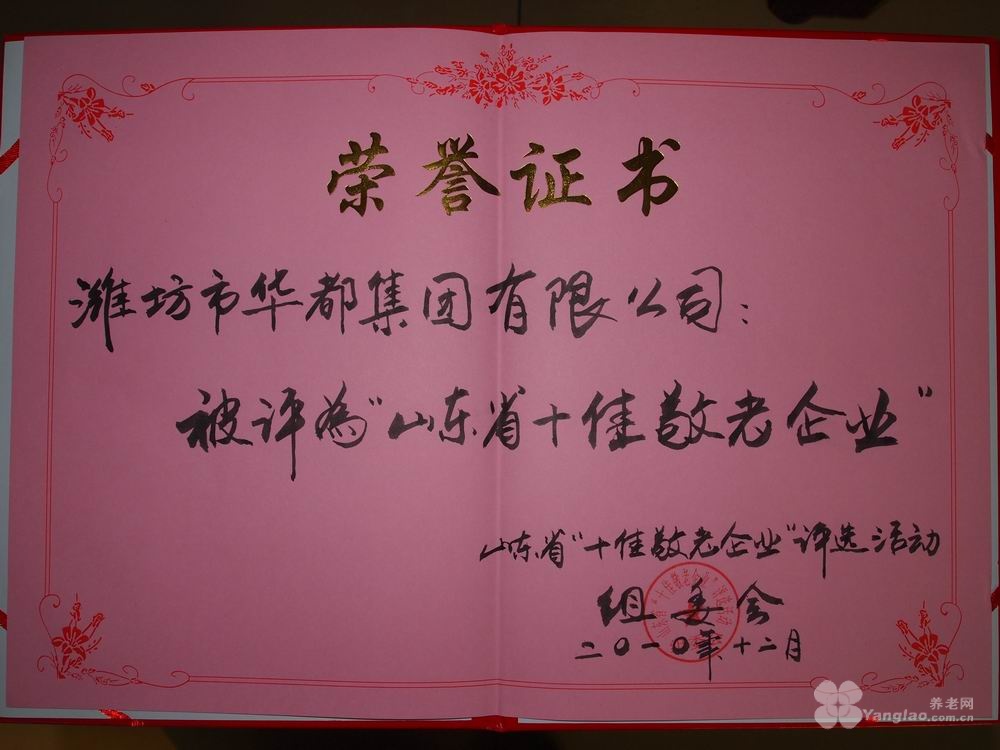 荣誉证书
潍坊市华都集团有限公司：
被评為"山东省十佳敬老企业"
山东省"十佳敬老企业"评选活动
组委会
二〇一〇年十二月
养老网
Yanglao.com.cn